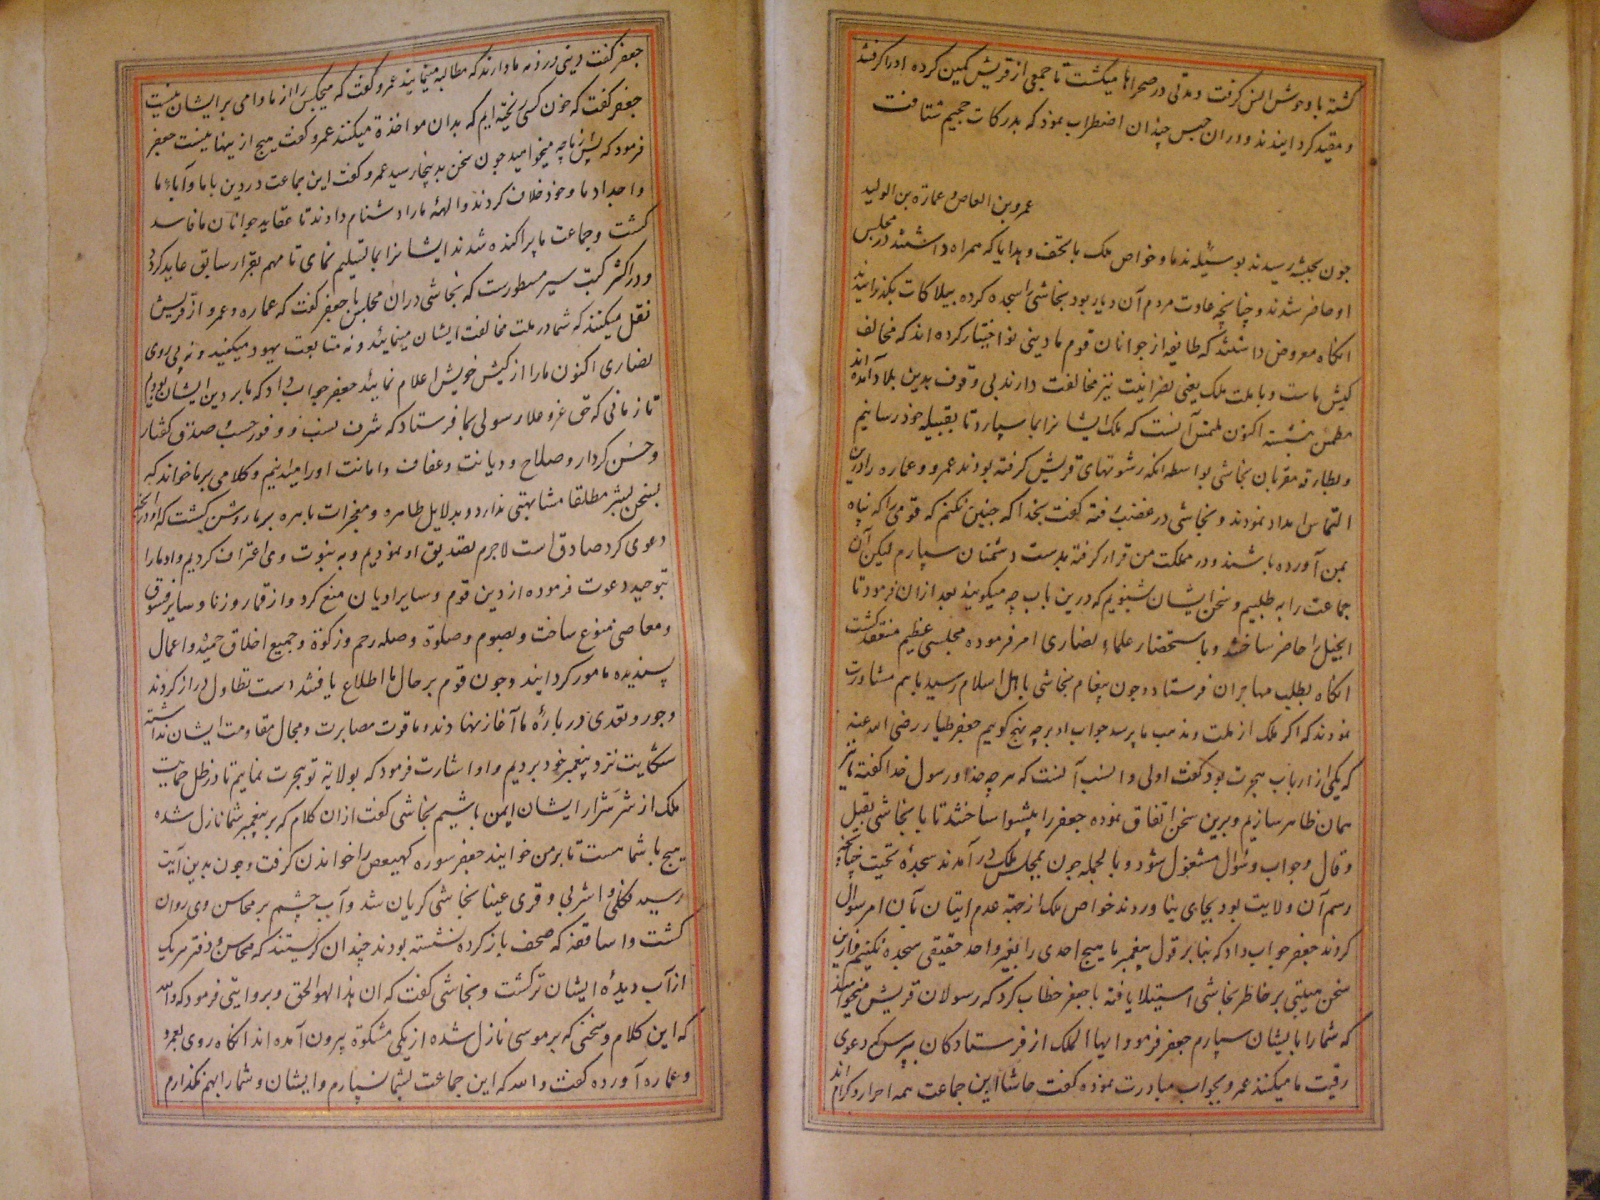 کشته با وحوش انس کرفت و مدتی در صحراها میکشت تا جمعی از قریش کمین کرده او را کرفتند
و مقید کردانیدند و در ان حبس چندان اضطراب نمود که بدرکات جحیم شتافت
عمرو بن العاص و عماره بن الولید
چون بحبشه رسیدند بوسیله ندما و خواص ملک با تحف و هدایا که همراه داشتند در مجلس
او حاضر شدند و چنانچه عادت مردم آن دیار بود نجاشی را سجده کرده بیلاکات بکذرانیدند
انکاه معروض داشتند که طایفه از جوانان قوم ما دینی نو اختیار کرده اند که مخالف
کیش ماست و با ملت ملک یعنی نصرانیت نیز مخالفت دارند بی وقوف بدین بلاد آمده اند
مطمئن نشسته اکنون ملتمس آنست که ملک ایشانرا بما سپارد تا بقبیله خود رسانیم
و بطارقه مقربان نجاشی بواسطه انکه رشوتهای قریش کرفته بودند عمرو و عماره را درین
التماس امداد نمودند و نجاشی در غضب رفته کفت بخدا که چنین نکنم که قومی را که پناه
بمن آورده باشند و در مملکت من قرار کرفته بدست دشمنان سپارم لیکن آن
جماعت را به طلبیم و سخن ایشان شنویم که درین باب چه میکویند بعد از ان فرمود تا
انجیل را حاضر ساختند و باستحضار علماء نصاری امر فرموده مجلسی عظیم منعقد کشت
انکاه بطلب مهاجران فرستاد و چون پیغام نجاشی باهل اسلام رسید باهم مشاورت
نمودند که اکر ملک از ملت و مذهب ما پرسد جواب او بر چه نهج کوییم جعفر طیار رضی الله عنه
که یکی از ارباب هجرت بود کفت اولی و انسب آنست که هر چه خدا و رسول خدا کفته ما نیز
همان ظاهر سازیم و برین سخن اتفاق نموده جعفر را پیشوا ساختند تا با نجاشی بقیل
و قال و جواب و سؤال مشغول شود و بالجمله چون بمجلس ملک در آمدند سجدهٔ تحیت چنانچه
رسم آن ولایت بود بجای نیاوردند خواص ملک از جهة عدم اتیان بآن امر سؤال
کردند جعفر جواب داد که بنابر قول پیغمبر ما هیچ احدی را بغیر واحد حقیقی سجده نکنیم و ازین
سخن هیبتی بر خاطر نجاشی استیلا یافته با جعفر خطاب کرد که رسولان قریش میخواهند
که شما را بایشان سپارم جعفر فرمود ایها الملک از فرستادکان بپرس که دعوی
رقیت ما میکنند عمرو بجواب مبادرت نموده کفت حاشا این جماعت همه احرار و کرام اند
جعفر کفت دینی در ذمه ما دارند که مطالبه مینمایند عمرو کفت که هیچکس را از ما وامی بر ایشان نیست
جعفر کفت که خون کسی ریخته ایم که بدان مواخذه میکنند عمرو کفت هیچ از ینها نیست جعفر
فرمود که پس از ما چه میخواهید چون سخن بدینجا رسید عمرو کفت این جماعت در دین با ما و آباء ما
و اجداد ما و خود خلاف کردند و الههٔ ما را دشنام دادند تا عقاید جوانان ما فاسد
کشت و جماعت ما پراکنده شدند ایشانرا بما تسلیم نمای تا مهم بقرار سابق عاید کردد
و در اکثر کتب سیر مسطورست که نجاشی دران مجلس با جعفر کفت که عماره و عمرو از قریش
نقل میکنند که شما در ملت مخالفت ایشان مینمایند و نه متابعت یهود میکنید و نه پی روی
نصاری اکنون ما را از کیش خویش اعلام نمایید جعفر جواب داد که ما بر دین ایشان بودیم
تا زمانی که حق عز و علا رسولی بما فرستاد که شرف نسب و وفور حسب و صدق کفتار
و حسن کردار و صلاح و دیانت و عفاف و امانت او را میدانیم و کلامی بر ما خواند که
بسخن بشر مطلقا مشابهتی ندارد و بدلایل ظاهره و معجزات باهره بر ما روشن کشت که او در انچه
دعوی کرد صادق است لاجرم تصدیق او نمودیم و به نبوت وی اعتراف کردیم و او ما را
بتوحید دعوت فرموده از دین قوم و سایر ادیان منع کرد و از قمار و زنا و سایر فسوق
و معاصی ممنوع ساخت و بصوم و صلوة و صله رحم و زکوة و جمیع اخلاق حمیده و اعمال
پسندیده مامور کردانید و چون قوم بر حال ما اطلاع یافتند دست تطاول دراز کردند
و جور و تعدی در بارهٔ ما آغاز نهادند و ما قوت مصابرت و مجال مقاومت ایشان نداشته
شکایت نزد پیغمبر خود بردیم و او اشارت فرمود که بولایة تو هجرت نماییم تا در ظل حمایت
ملک از شر شرار ایشان ایمن باشیم نجاشی کفت از ان کلام که بر پیغمبر شما نازل شده
هیچ با شما هست تا بر من خوانید جعفر سوره کهیعص را خواندن کرفت و چون بدین آیت
رسید فکلی و اشربی و قری عینا نجاشی کریان شد و آب چشم بر محاسن وی روان
کشت و اساقفه که صحف باز کرده نشسته بودند چندان کریستند که محاسن و دفتر هر یک
از آب دیدهٔ ایشان تر کشت و نجاشی کفت که ان هذا لهو الحق و بروایتی فرمود که والله
که این کلام و سخنی که بر موسی نازل شده از یکی مشکوة بیرون آمده اند انکاه روی بعمرو
و عماره آورده کفت والله که این جماعت بشما نسپارم و ایشان و شما را بهم نکذارم